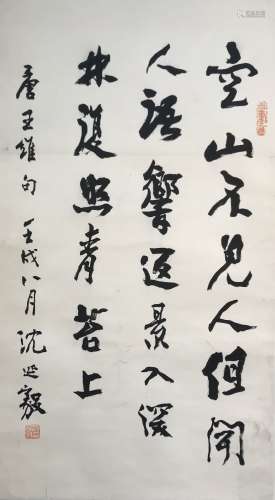 空山不見人但聞
人語響返景入深
林復照青苔上
唐王維句 壬戌八月 沈延毅